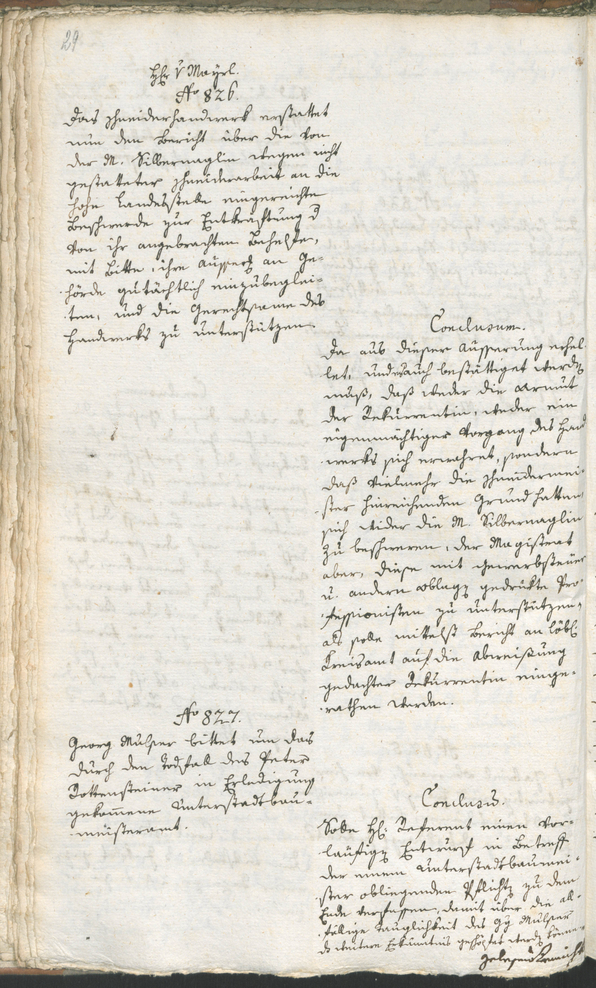 29
H. v Mayrl.
No 826.
Das Schneiderhandwerk erstattet
nun den Bericht über die von
der M. Silbernaglin wegen nicht
gestatteter Schneiderarbeit an die
hohe Landesstelle eingereichte
Beschwerde zur Entkräftung d
von ihr angebrachten Behelfe,
mit Bitte, ihre Äusserg an Ge-
hörde gutächtlich einzubeglei-
ten, und die Gerechtsame des
Handwerks zu unterstützen.
Conclusum.
Da aus dieser Äusserung erhel-
let, und auch bestättiget werden
muß, daß weder die Armut
der Rekurrentin, weder ein
eigenmächtiger Vorgang des Hand
werks sich erwahret, sondern
daß vielmehr die Schneidermei-
ster hinreichenden Grund hatten
sich wider die M. Silbernaglin
zu beschweren, der Magistrat
aber, diese mit Gewerbsteuer
u. andern Oblagen gedrükte Pro-
fessionisten zu unterstützen,
als solle mittelst Bericht an löbl.
Kreisamt auf die Abweisung
gedachter Rekurrentin einge-
rathen werden.
No 827.
Georg Mulser bittet um das
durch den Todfall des Peter
Rottensteiner in Erledigung
gekommene Unterstadtbau-
meisteramt.
Conclusum.
Solle H. Referent einen vor-
läufigen Entwurf in Betreff
der einem Unterstadtbaumei-
ster obliegenden Pflichten zu dem
Ende verfassen, damit über die al-
fällige Tauglichkeit des Gg Mulser
die weitere Erkenntnis geschöpft werden könne.